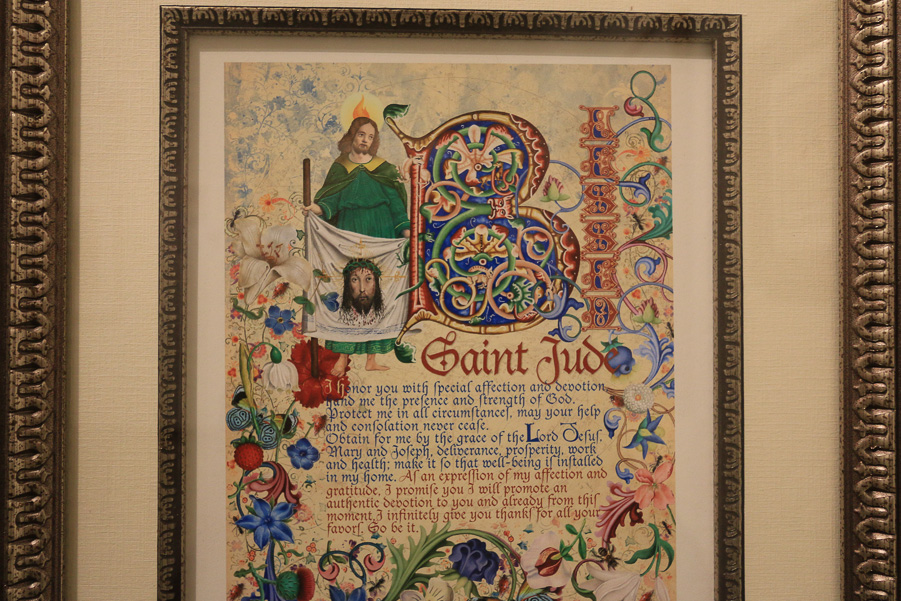 B
Saint Jude
I honor you with ſpecial affection and devotion,
hand me the preſence and ſtrength of God.
Protect me in all circumſtanceſ, may your help
and conſolation never ceaſe.
Obtain for me by the grace of the Lord Jeſuſ.
Mary and Joſeph, deliverance, proſperity, work
and health; make it ſo that well-being iſ inſtalled
in my home. Aſ an expreſſion of my affection and
gratitude, I promiſe you I will promote an
authentic devotion to you and already from thiſ
moment, I infinitely give you thankſ for all your
favorſ. So be it.